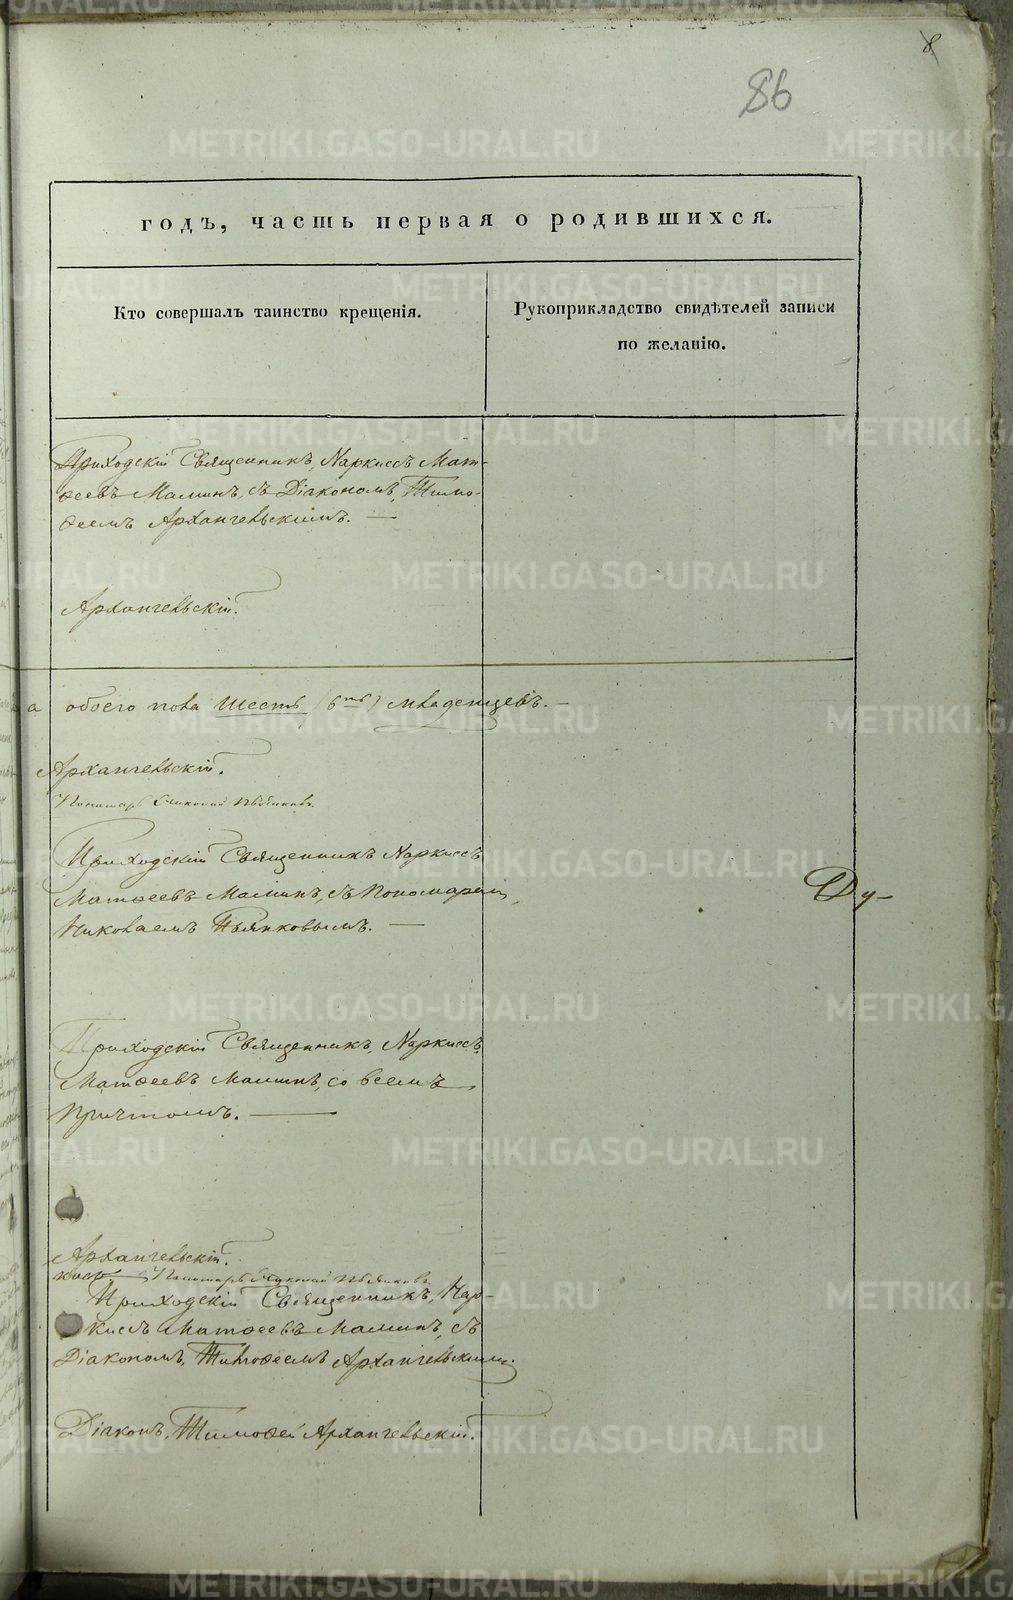 8
86
годъ, часть первая о родившихся.
Кто совершалъ таинство крещенія.
Рукоприкладство свидѣтелей записи
по желанію.
Приходскій Священникъ, Наркиссъ Мат-
ѳеевъ Маминъ, съ Діакономъ, Тимо-
ѳеемъ Архангельскимъ. —
Архангельскій.
а обоего пола Шесть (6ть) младенцевъ. —
Архангельскій.
Пономарь Николай Пьянковъ.
Приходскій Священникъ Наркиссъ
Матѳеевъ Маминъ, съ Пономаремъ,
Николаемъ Пьянковымъ. —
Ду-
Приходскій Священникъ, Наркиссъ
Матѳеевъ Маминъ, со всемъ
Причтомъ. —
Архангельскій.
Пономарь Николай Пьянковъ.
Приходскій Священникъ, Нар-
киссъ Матѳеевъ Маминъ, съ
Діакономъ, Тимоѳеемъ Архангельскимъ.
Діаконъ, Тимоѳей Архангельскій.
METRIKI.GASO-URAL.RU